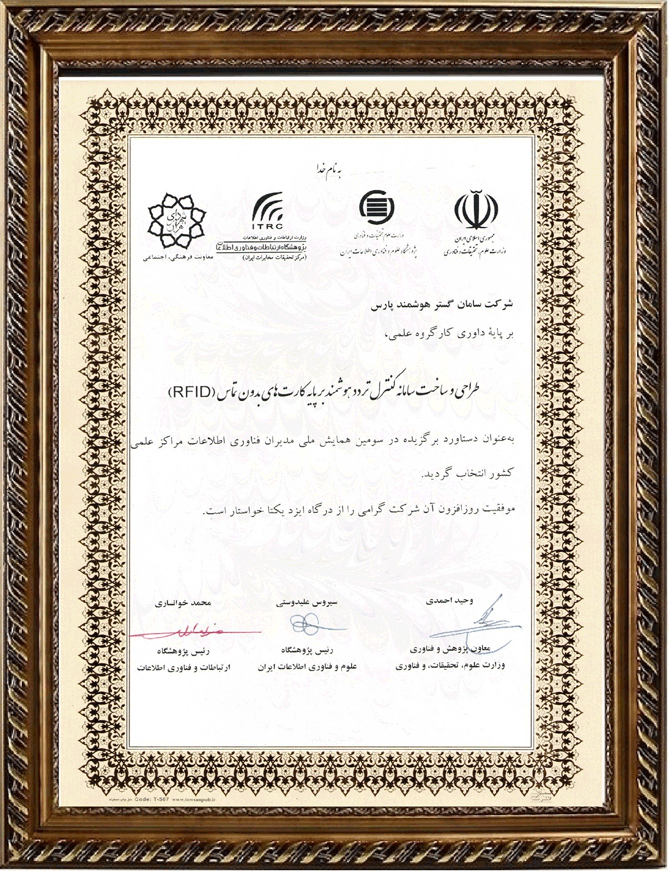 به نام خدا
جمهوری اسلامی ایران
وزارت علوم، تحقیقات و فناوری
وزارت علوم، تحقیقات و فناوری
پژوهشگاه علوم و فناوری اطلاعات ایران
ITRC
وزارت ارتباطات و فناوری اطلاعات
پژوهشگاه ارتباطات و فناوری اطلاعات
(مرکز تحقیقات مخابرات ایران)
معاونت فرهنگی، اجتماعی
شرکت سامان گستر هوشمند پارس
بر پایۀ داوری کارگروه علمی،
طراحی و ساخت سامانه کنترل تردد هوشمند بر پایه کارت‌های بدون تماس (RFID)
به‌عنوان دستاورد برگزیده در سومین همایش ملی مدیران فناوری اطلاعات مراکز علمی
کشور انتخاب گردید.
موفقیت روزافزون آن شرکت گرامی را از درگاه ایزد یکتا خواستار است.
وحید احمدی
معاون پژوهش و فناوری
وزارت علوم، تحقیقات، و فناوری
سیروس علیدوستی
رئیس پژوهشگاه
علوم و فناوری اطلاعات ایران
محمد خوانساری
رئیس پژوهشگاه
ارتباطات و فناوری اطلاعات
Code: T-507